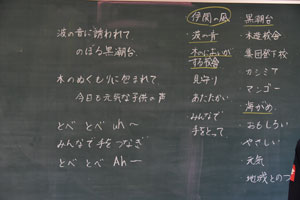 波の音に誘われて
のぼる黒潮台
木のぬくもりに包まれて
今日も元気な子供の声
とべ とべ uh〜
みんなで 手をつなぎ
とべ とべ Ah〜
伊関の風
・波の音
・木のにおいが
する校舎
・見守り
・あたたかい
・みんなで
手をとって
・黒潮台
・木造校舎
・集団登下校
・カシミア
・マンゴー
・海がめ
・おもしろい
・やさしい
・元気
・地域とのつ